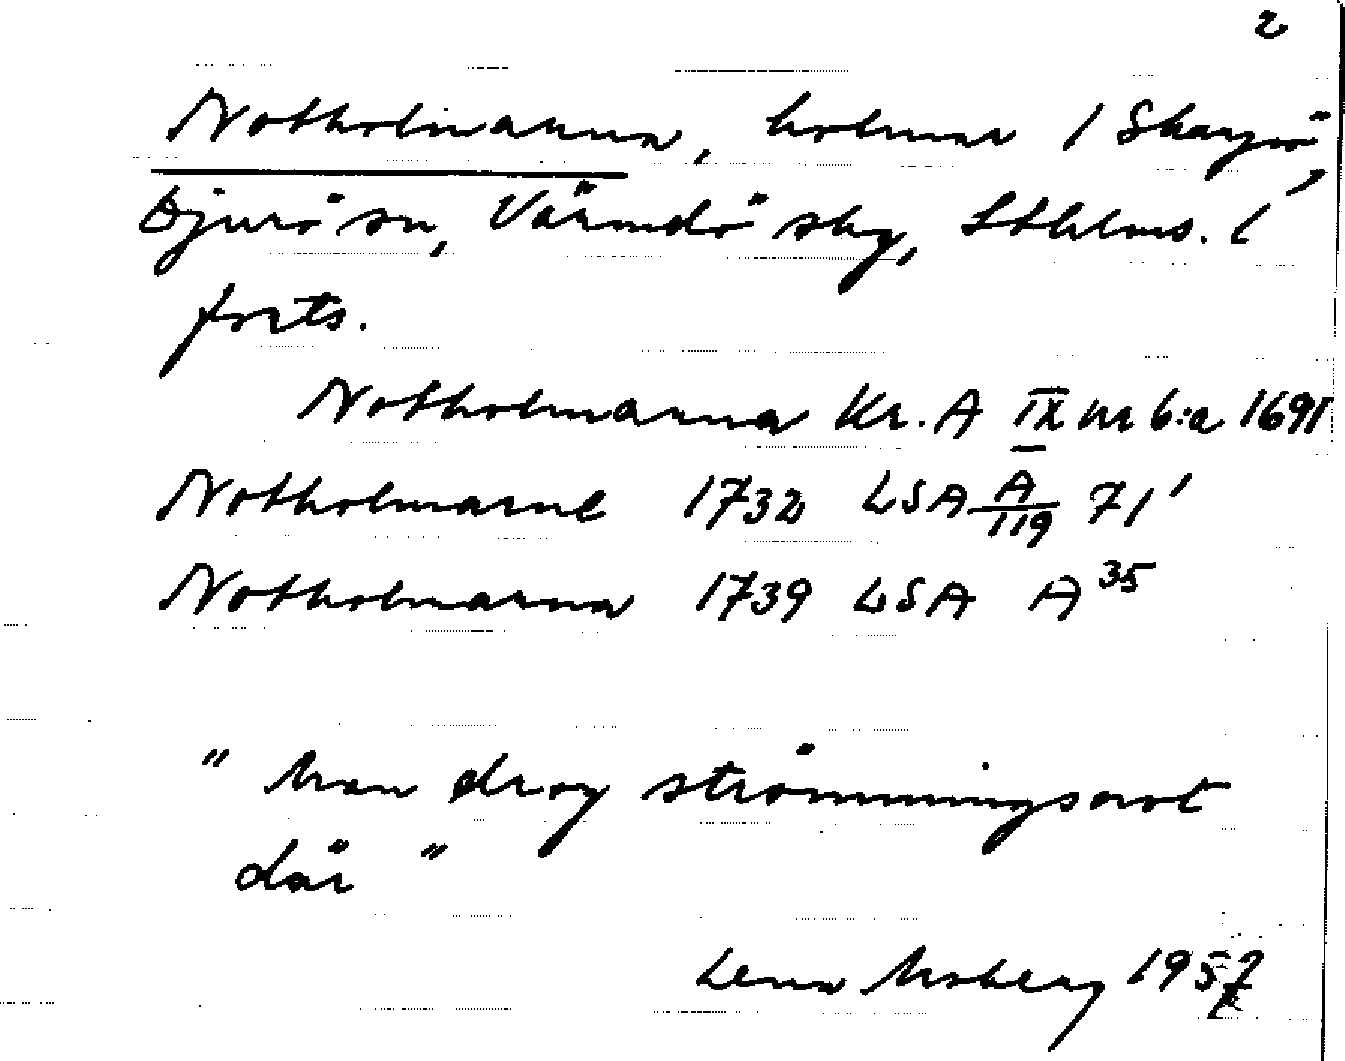 2
Notholmarna, holmar i Skarpö,
Djurö sn, Värmdö skg, Sthlms. l
forts.
Notholmarna Kr. A IX nr 6:a 1691
Notholmarne 1732 LSA A/119 71'
Notholmarna 1739 LSA A 35
" Man drog strömmingsnot
där "
Lena Moberg 1957